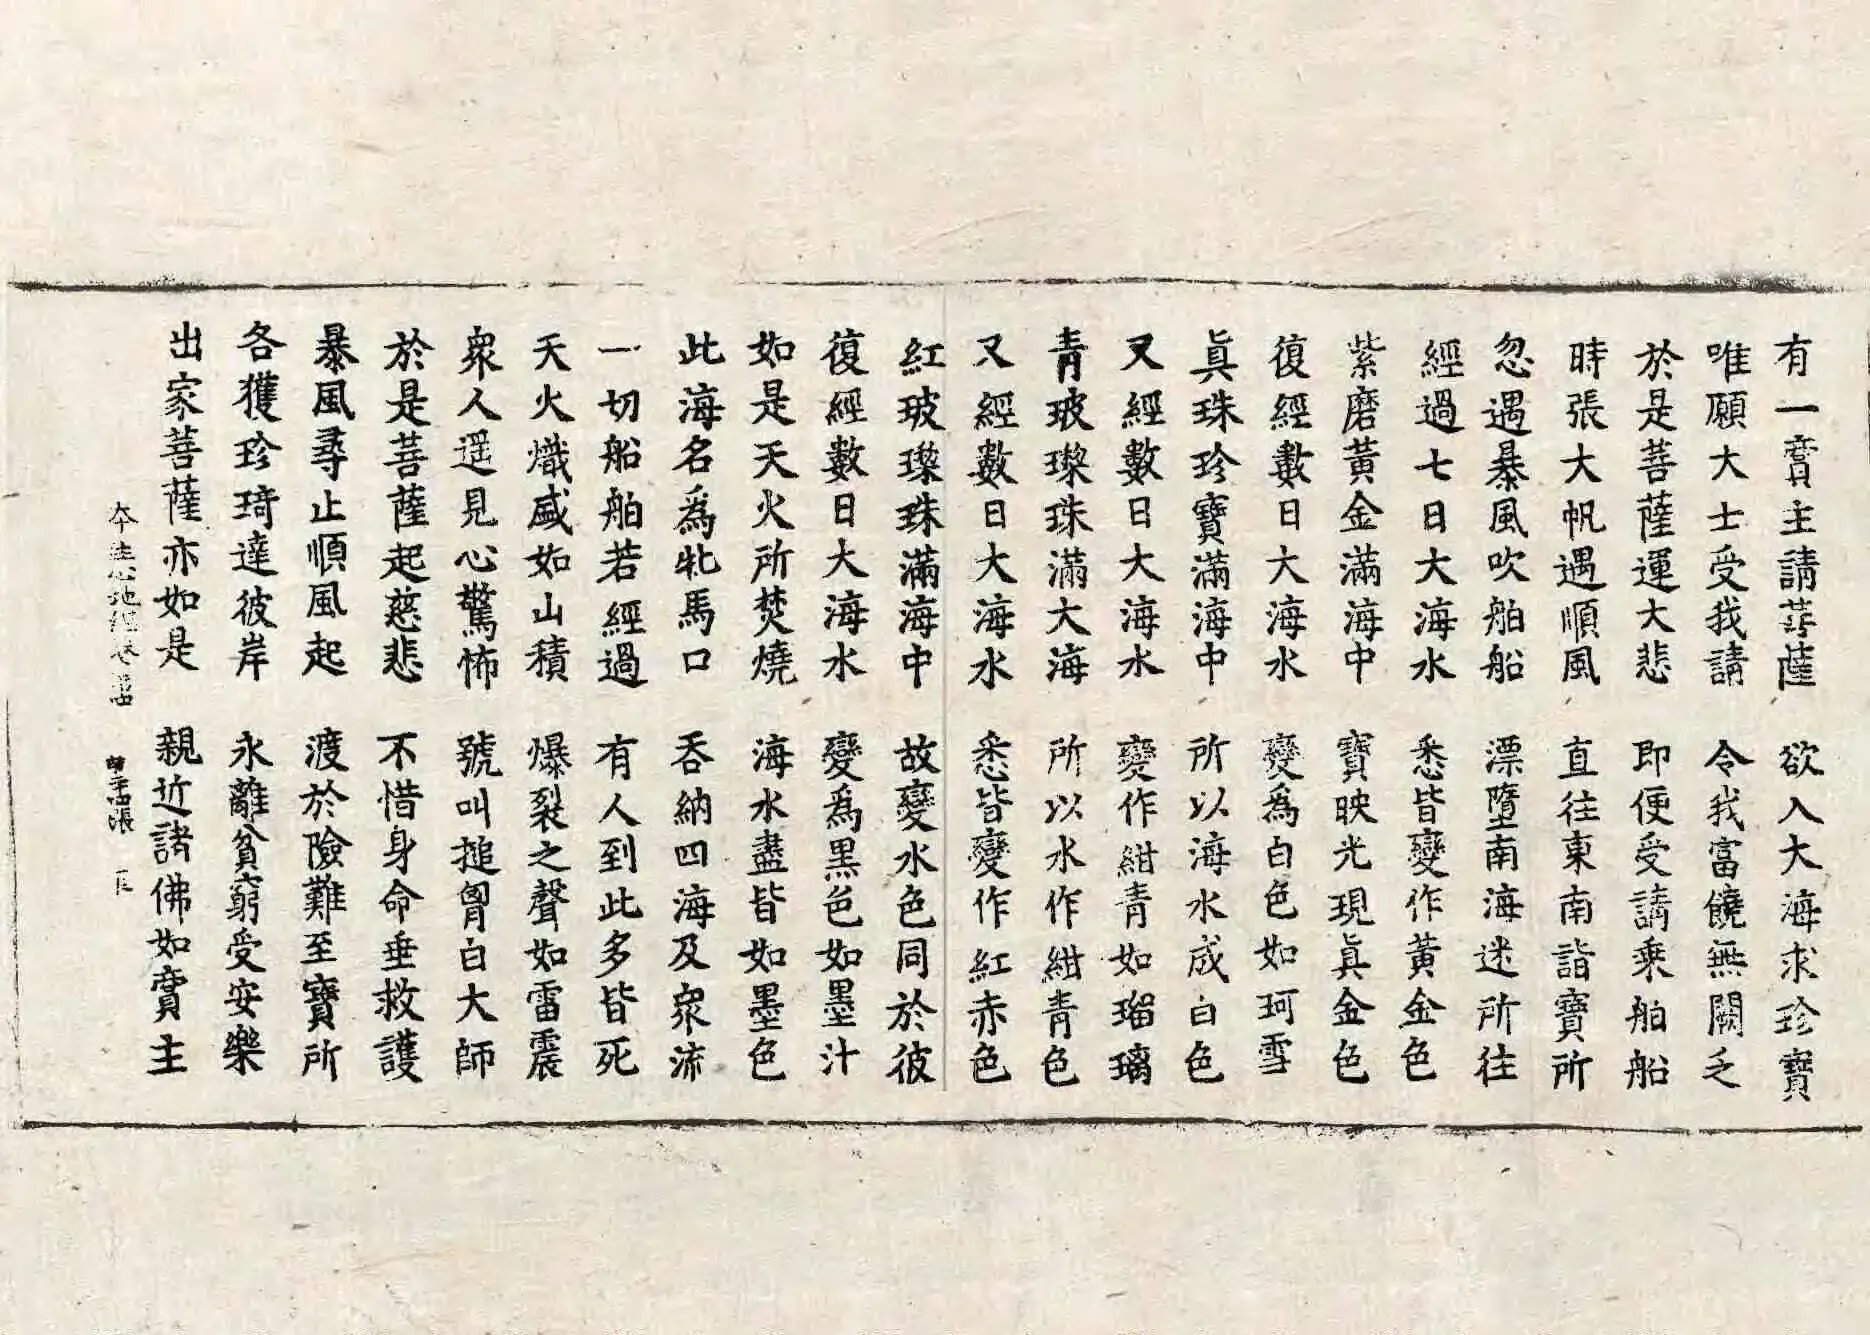 有一賔主請菩薩 欲入大海求珍寶
唯願大士受我請 令我富饒無闕乏
於是菩薩運大悲 即便受請乗舶船
時張大帆遇順風 直往東南詣寶所
忽遇暴風吹舶船 漂墮南海迷所往
經過七日大海水 悉皆變作黃金色
紫磨黃金滿海中 寶映光現眞金色
復經數日大海水 變為白色如珂雪
眞珠珍寶滿海中 所以海水成白色
又經數日大海水 變作紺青如瑠璃
青玻瓈珠滿大海 所以水作紺青色
又經數日大海水 悉皆變作紅赤色
紅玻瓈珠滿海中 故變水色同於彼
復經數日大海水 變爲黒色如墨汁
如是天火所焚燒 海水盡皆如墨色
此海名爲牝馬口 吞納四海及衆流
一切船舶若經過 有人到此多皆死
天火熾盛如山積 爆裂之聲如雷震
衆人遥見心驚怖 號叫搥胷白大師
於是菩薩起慈悲 不惜身命垂救護
暴風尋止順風起 渡於險難至寶所
各獲珍琦達彼岸 永離貧窮受安樂
出家菩薩亦如是 親近諸佛如賔主
本生心地經卷 張